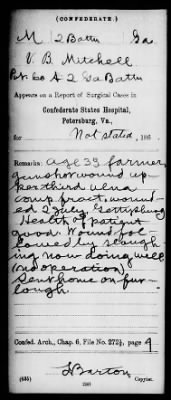 (CONFEDERATE.)
M 2 Battn Ga
V. B. Mitchell
Pvt. Co A 2 Ga Battn
Appears on a Report of Surgical Cases in
Confederate States Hospital,
Petersburg, Va.,
for Not stated, 186
Remarks: age 33 farmer
gunshot wound up-
per third ulna
comp. fract. wound-
ed 2 July, Gettysburg
Health of patient
good. Wound fol-
lowed by slough-
ing now doing well
(no operation).
Sent home on fur-
lough.
Confed. Arch., Chap. 6, File No. 272½, page 9
Barton
(635) Copyist.